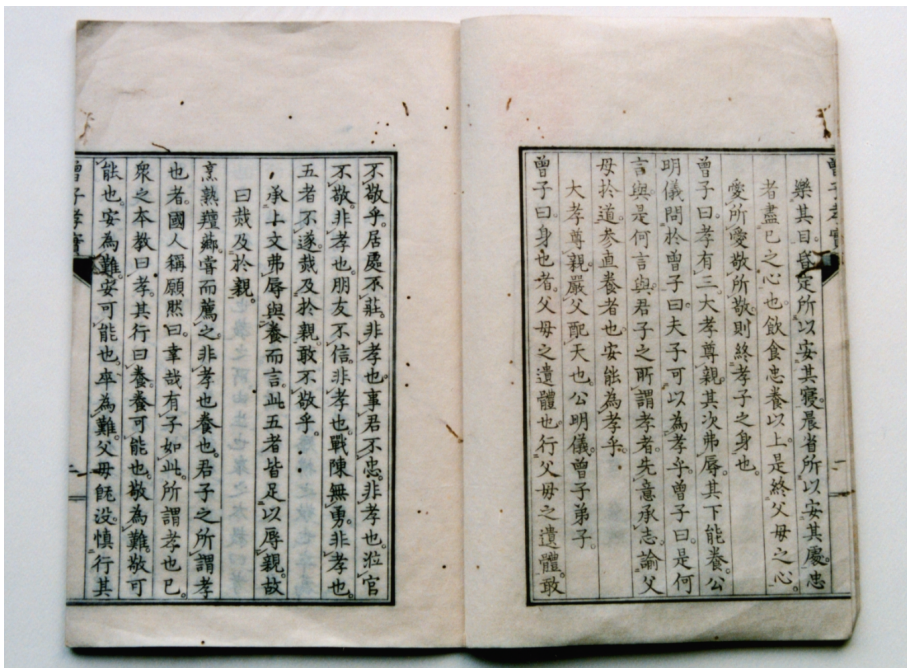 樂其目。昏定所以安其寢。晨省所以安其處。忠
者盡己之心也。飲食忠養以上。是終父母之心。
愛所愛敬所敬則終孝子之身也。
曾子曰。孝有三。大孝尊親。其次弗辱。其下能養。公
明儀問於曾子曰。夫子可以為孝乎。曾子曰。是何
言與。是何言與。君子之所謂孝者。先意承志。諭父
母於道。參直養者也。安能為孝乎。
大孝尊親。嚴父配天也。公明儀。曾子弟子。
曾子曰。身也者。父母之遺體也。行父母之遺體。敢
不敬乎。居處不莊。非孝也。事君不忠。非孝也。涖官
不敬。非孝也。朋友不信。非孝也。戰陳無勇。非孝也。
五者不遂。烖及於親。敢不敬乎。
承上文弗辱與養而言。此五者皆足以辱親。故
曰烖及於親。
烹熟羶薌。嘗而薦之。非孝也。養也。君子之所謂孝
也者。國人稱願然曰。幸哉有子如此。所謂孝也已。
衆之本教曰孝。其行曰養。養可能也。敬為難。敬可
能也。安為難。安可能也。卒為難。父母既没。慎行其
曾子孝實